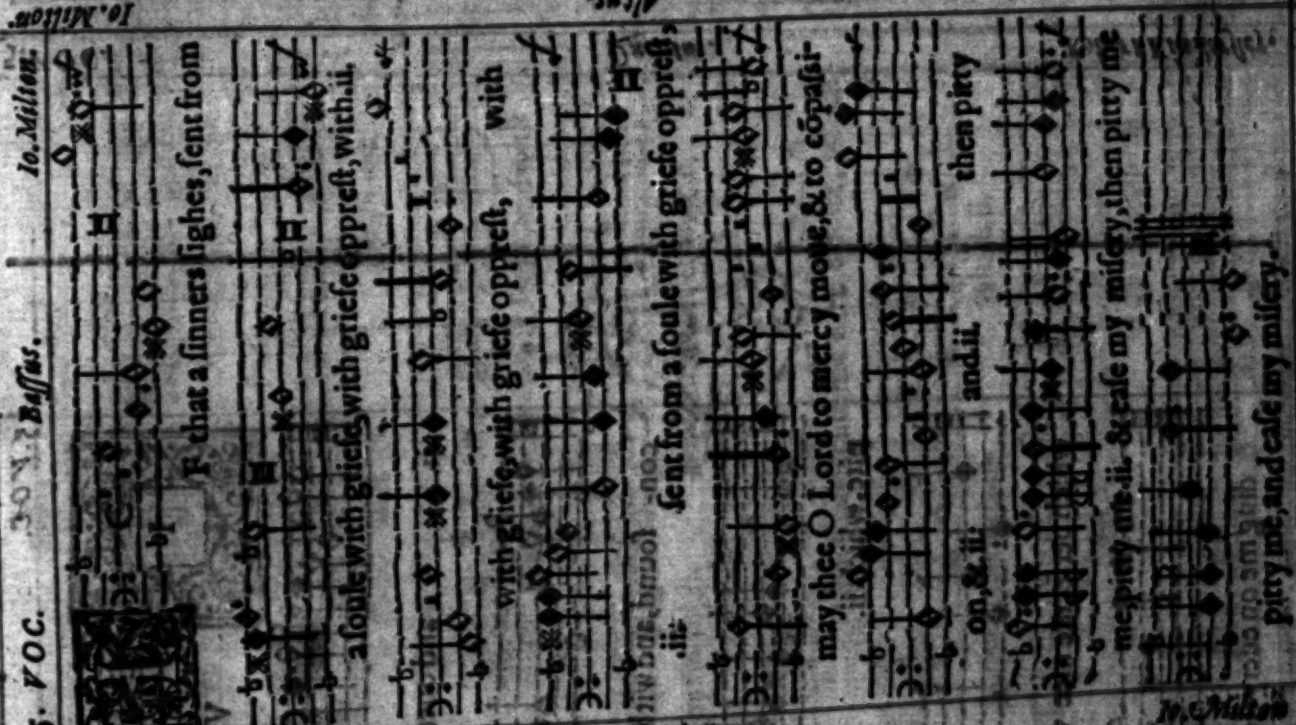 5. VOC. Bassus. Io. Milton.
IF that a sinners sighes, sent from
a soule with griefe, with griefe opprest, with .ii.
with griefe, with griefe opprest, with
.ii. sent from a soule with griefe opprest,
may thee O Lord to mercy moue, & to cōpassi-
on, & ii: and ii. then pitty
me, pitty me .ii. & ease my misery, then pitty me
pitty me, and ease my misery.
Altus. Io. Milton.
Io. Milton